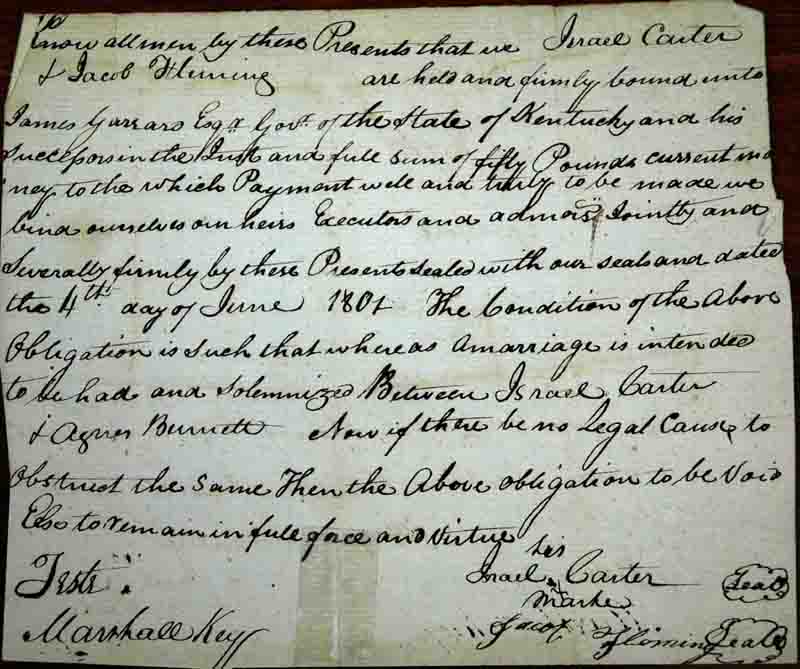 Know all men by these Presents that we Israel Carter
& Jacob Fleming are held and firmly bound unto
James Garrard Esqr Govr of the State of Kentucky and his
Successors in the Just and full sum of fifty Pounds current mo
ney to the which Payment well and truly to be made we
bind ourselves our heirs Executors and admors Jointly and
Severally firmly by these Presents sealed with our seals and dated
the 4th day of June 1801 The Condition of the Above
Obligation is Such that whereas a marriage is intended
to be had and Solemnized Between Israel Carter
& Agnes Burnett Now if there be no Legal Cause to
Obstruct the Same Then the Above obligation to be Void
Else to remain in full force and Virtue
his
Teste Israel Carter Seal
Marke
Marshall Key Jacob Fleming Seal